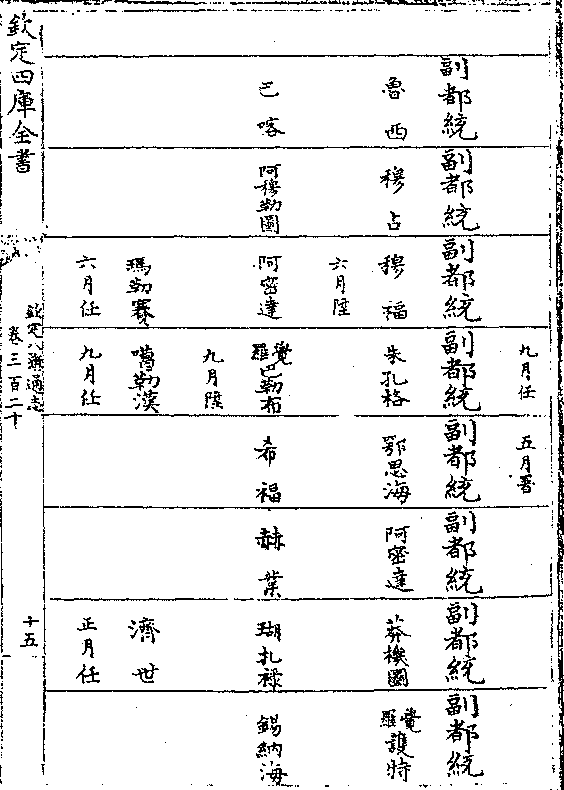 副都統
魯西
巴喀
副都統
穆占
阿穆勒圖
副都統
穆福
六月陞
阿密達
瑪勒賽
六月任
九月任
副都統
朱孔格
覺羅巴勒布
九月陞
噶勒漢
九月任
五月署
副都統
鄂思海
希福
副都統
阿密達
赫葉
副都統
莽機圖
瑚扎祿
濟世
正月任
副都統
覺羅護特
錫納海
欽定四庫全書
欽定八旗通志
卷三百二十
十五